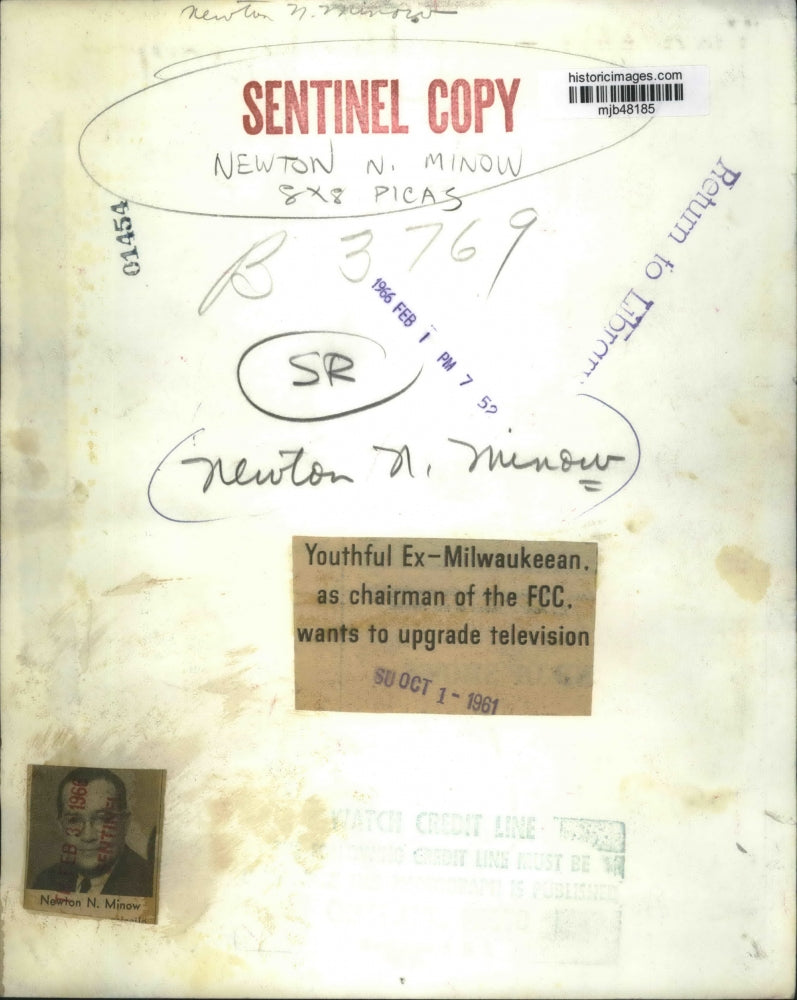 Newton N. Minow
historicimages.com
mjb48185
SENTINEL COPY
NEWTON N. MINOW
8X8 PICAS
Return to Library
01454
B 3769
1966 FEB 1 PM 7 52
SR
Newton N. Minow
Youthful Ex-Milwaukeean,
as chairman of the FCC,
wants to upgrade television
SU OCT 1 - 1961
FEB 3 1966
SENTINEL
Newton N. Minow
WATCH CREDIT LINE
FOLLOWING CREDIT LINE MUST BE
PHOTOGRAPH IS PUBLISHED